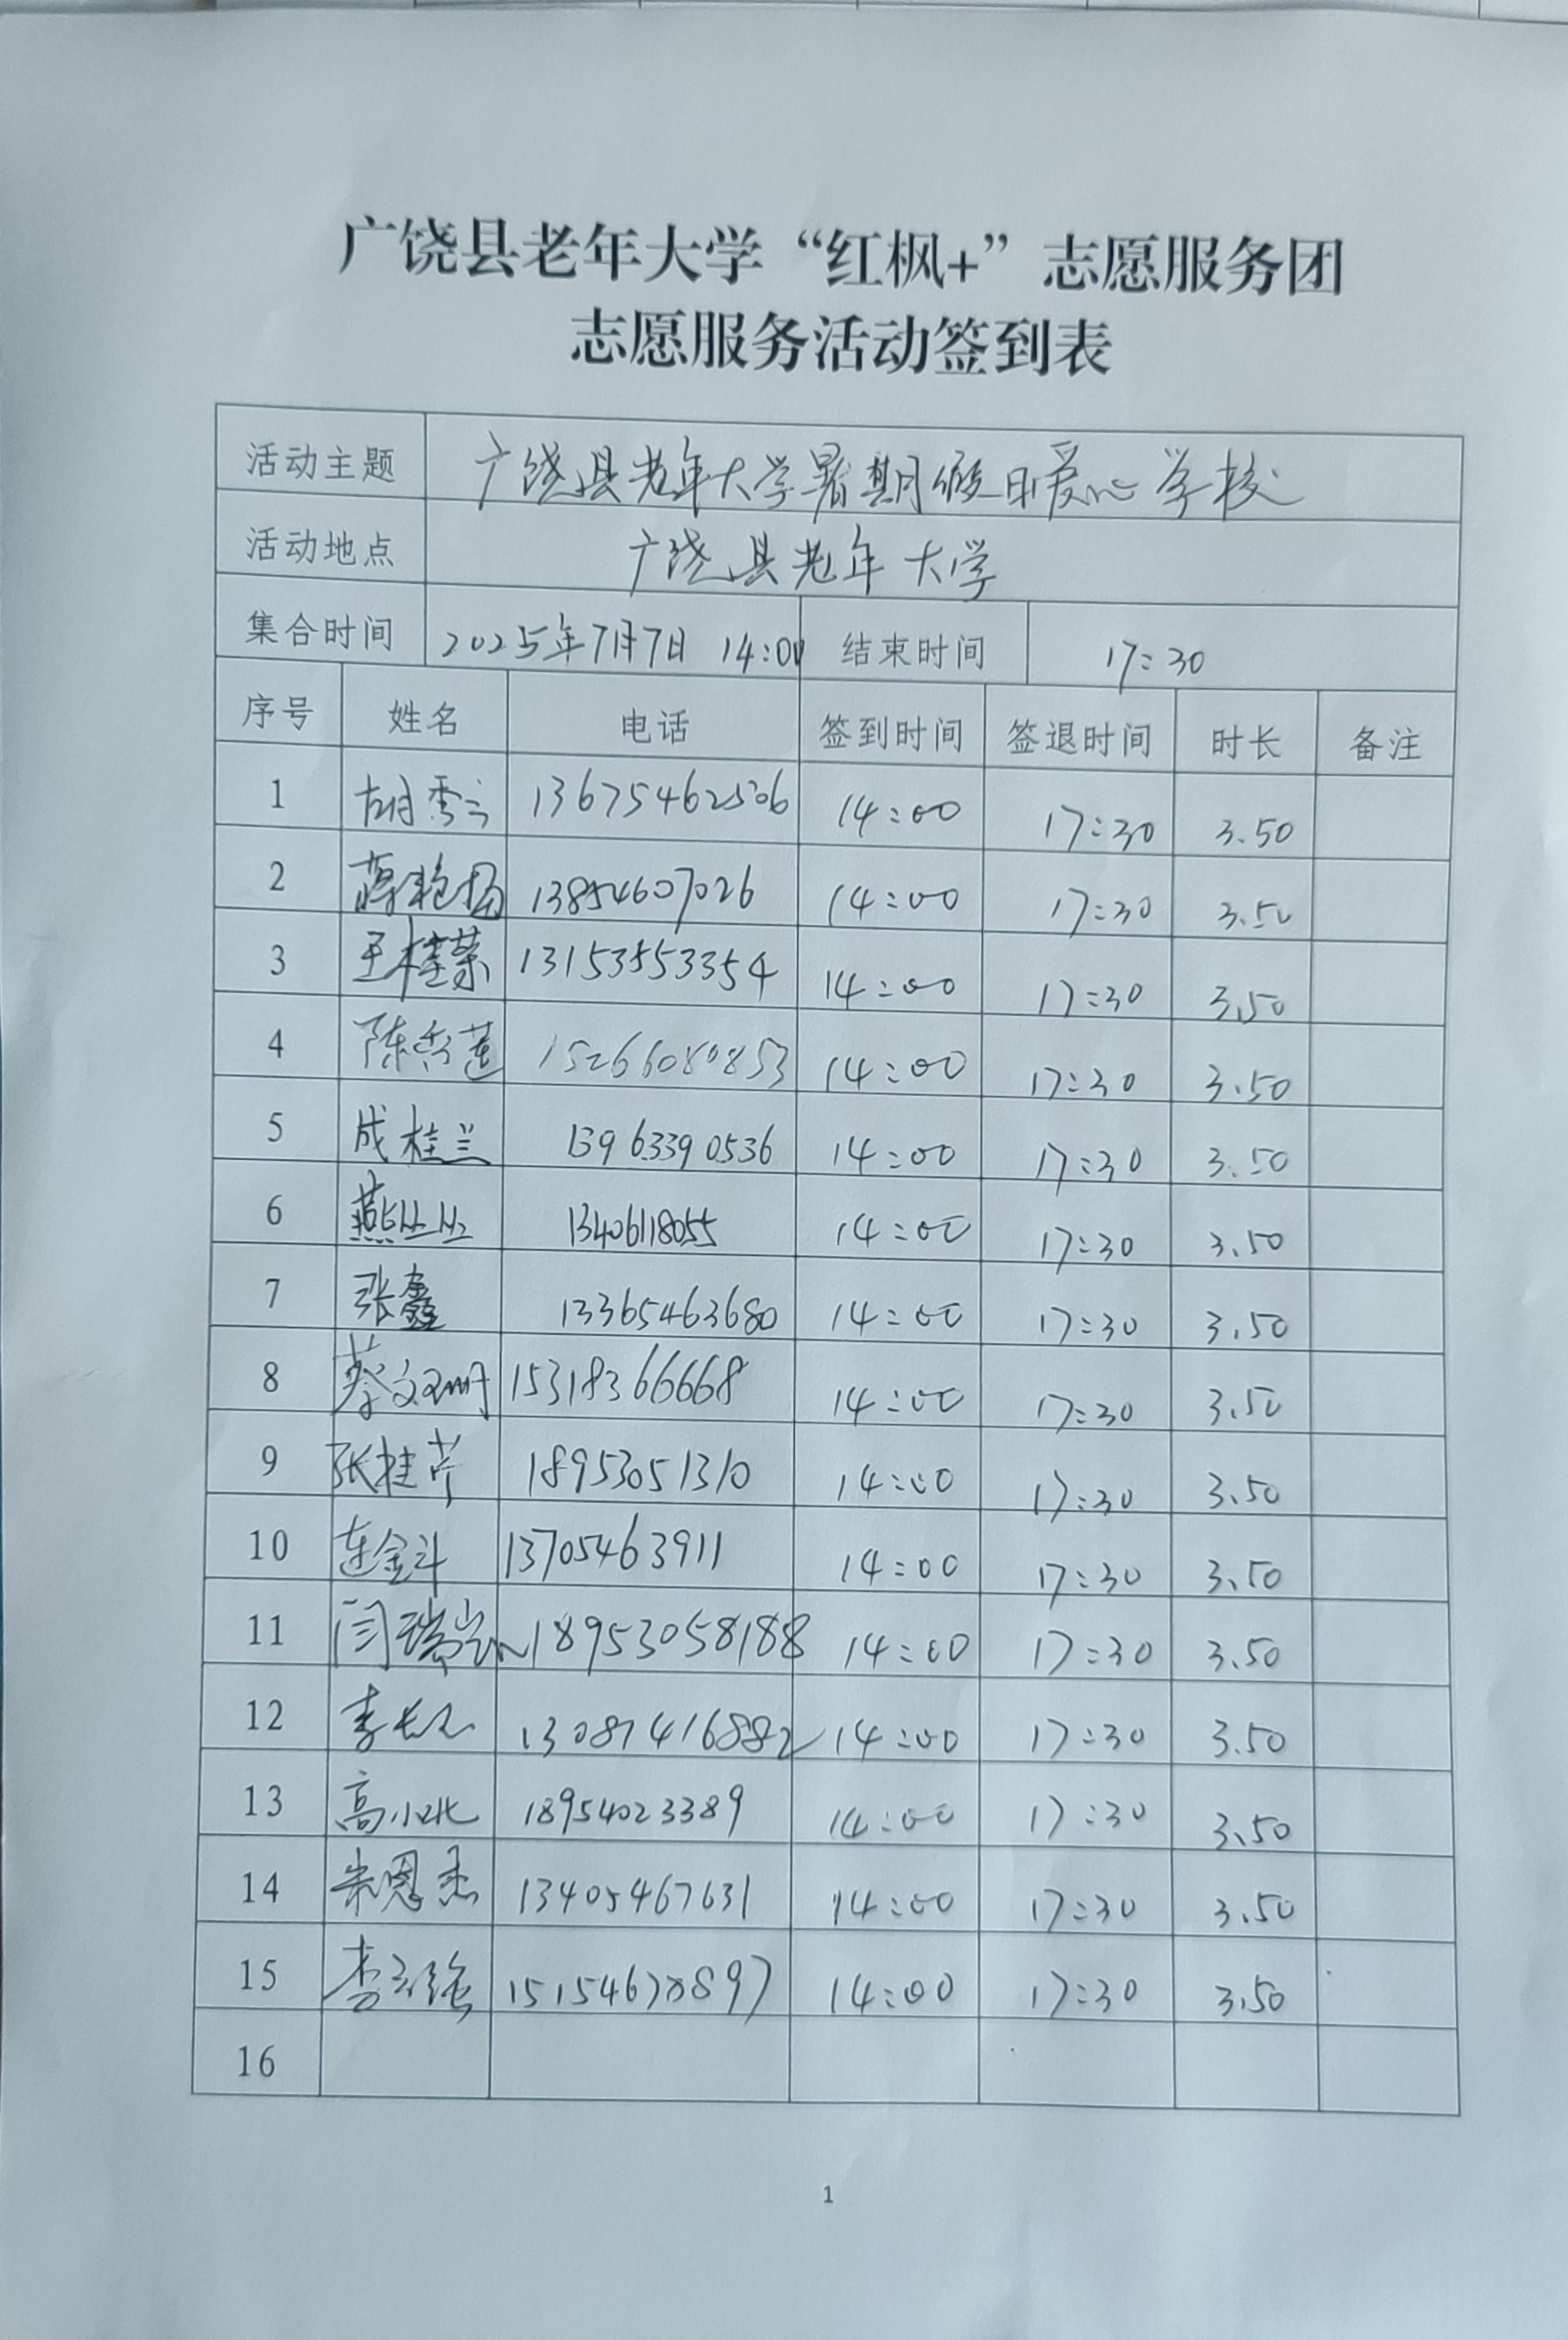 广饶县老年大学“红枫+”志愿服务团
志愿服务活动签到表
活动主题 广饶县老年大学暑期假日爱心学校
活动地点 广饶县老年大学
集合时间 2025年7月7日 14:00 结束时间 17:30
序号 姓名 电话 签到时间 签退时间 时长 备注
1 胡秀云 13675462506 14:00 17:30 3.50
2 蒋艳梅 13854607026 14:00 17:30 3.50
3 王桂荣 13153553354 14:00 17:30 3.50
4 陈秀莲 15266080853 14:00 17:30 3.50
5 成桂兰 13963390536 14:00 17:30 3.50
6 燕丝丝 13406118055 14:00 17:30 3.50
7 张鑫 13365463680 14:00 17:30 3.50
8 蔡文珊 15318366668 14:00 17:30 3.50
9 张桂芹 18953051310 14:00 17:30 3.50
10 连金斗 13705463911 14:00 17:30 3.50
11 闫瑞 18953058188 14:00 17:30 3.50
12 李长 13087416882 14:00 17:30 3.50
13 高小 18954023389 14:00 17:30 3.50
14 朱恩杰 13405467631 14:00 17:30 3.50
15 李云强 15154678897 14:00 17:30 3.50
16
1